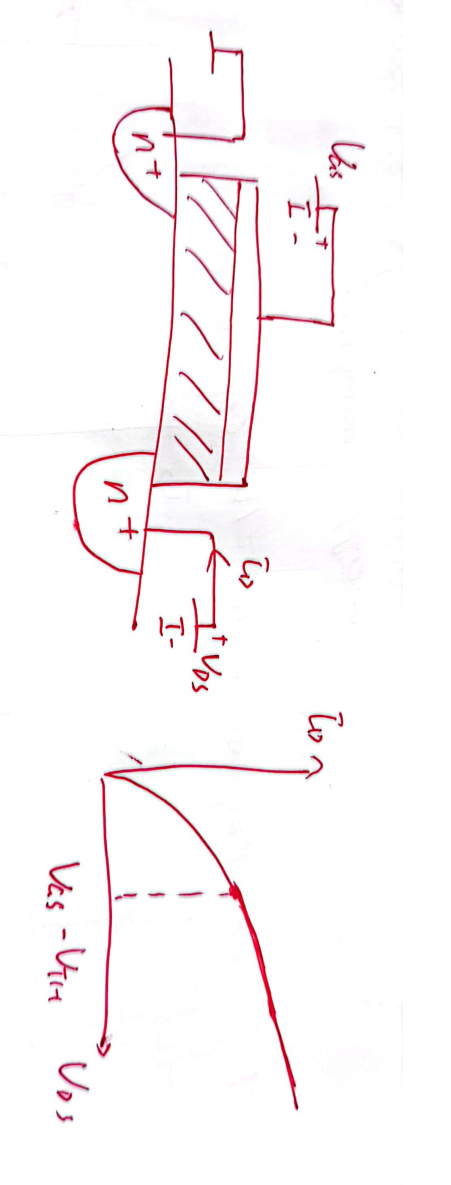 VGS
+
-
n+
n+
iD
+
-
VDS
iD
VGS - VTH
VDS